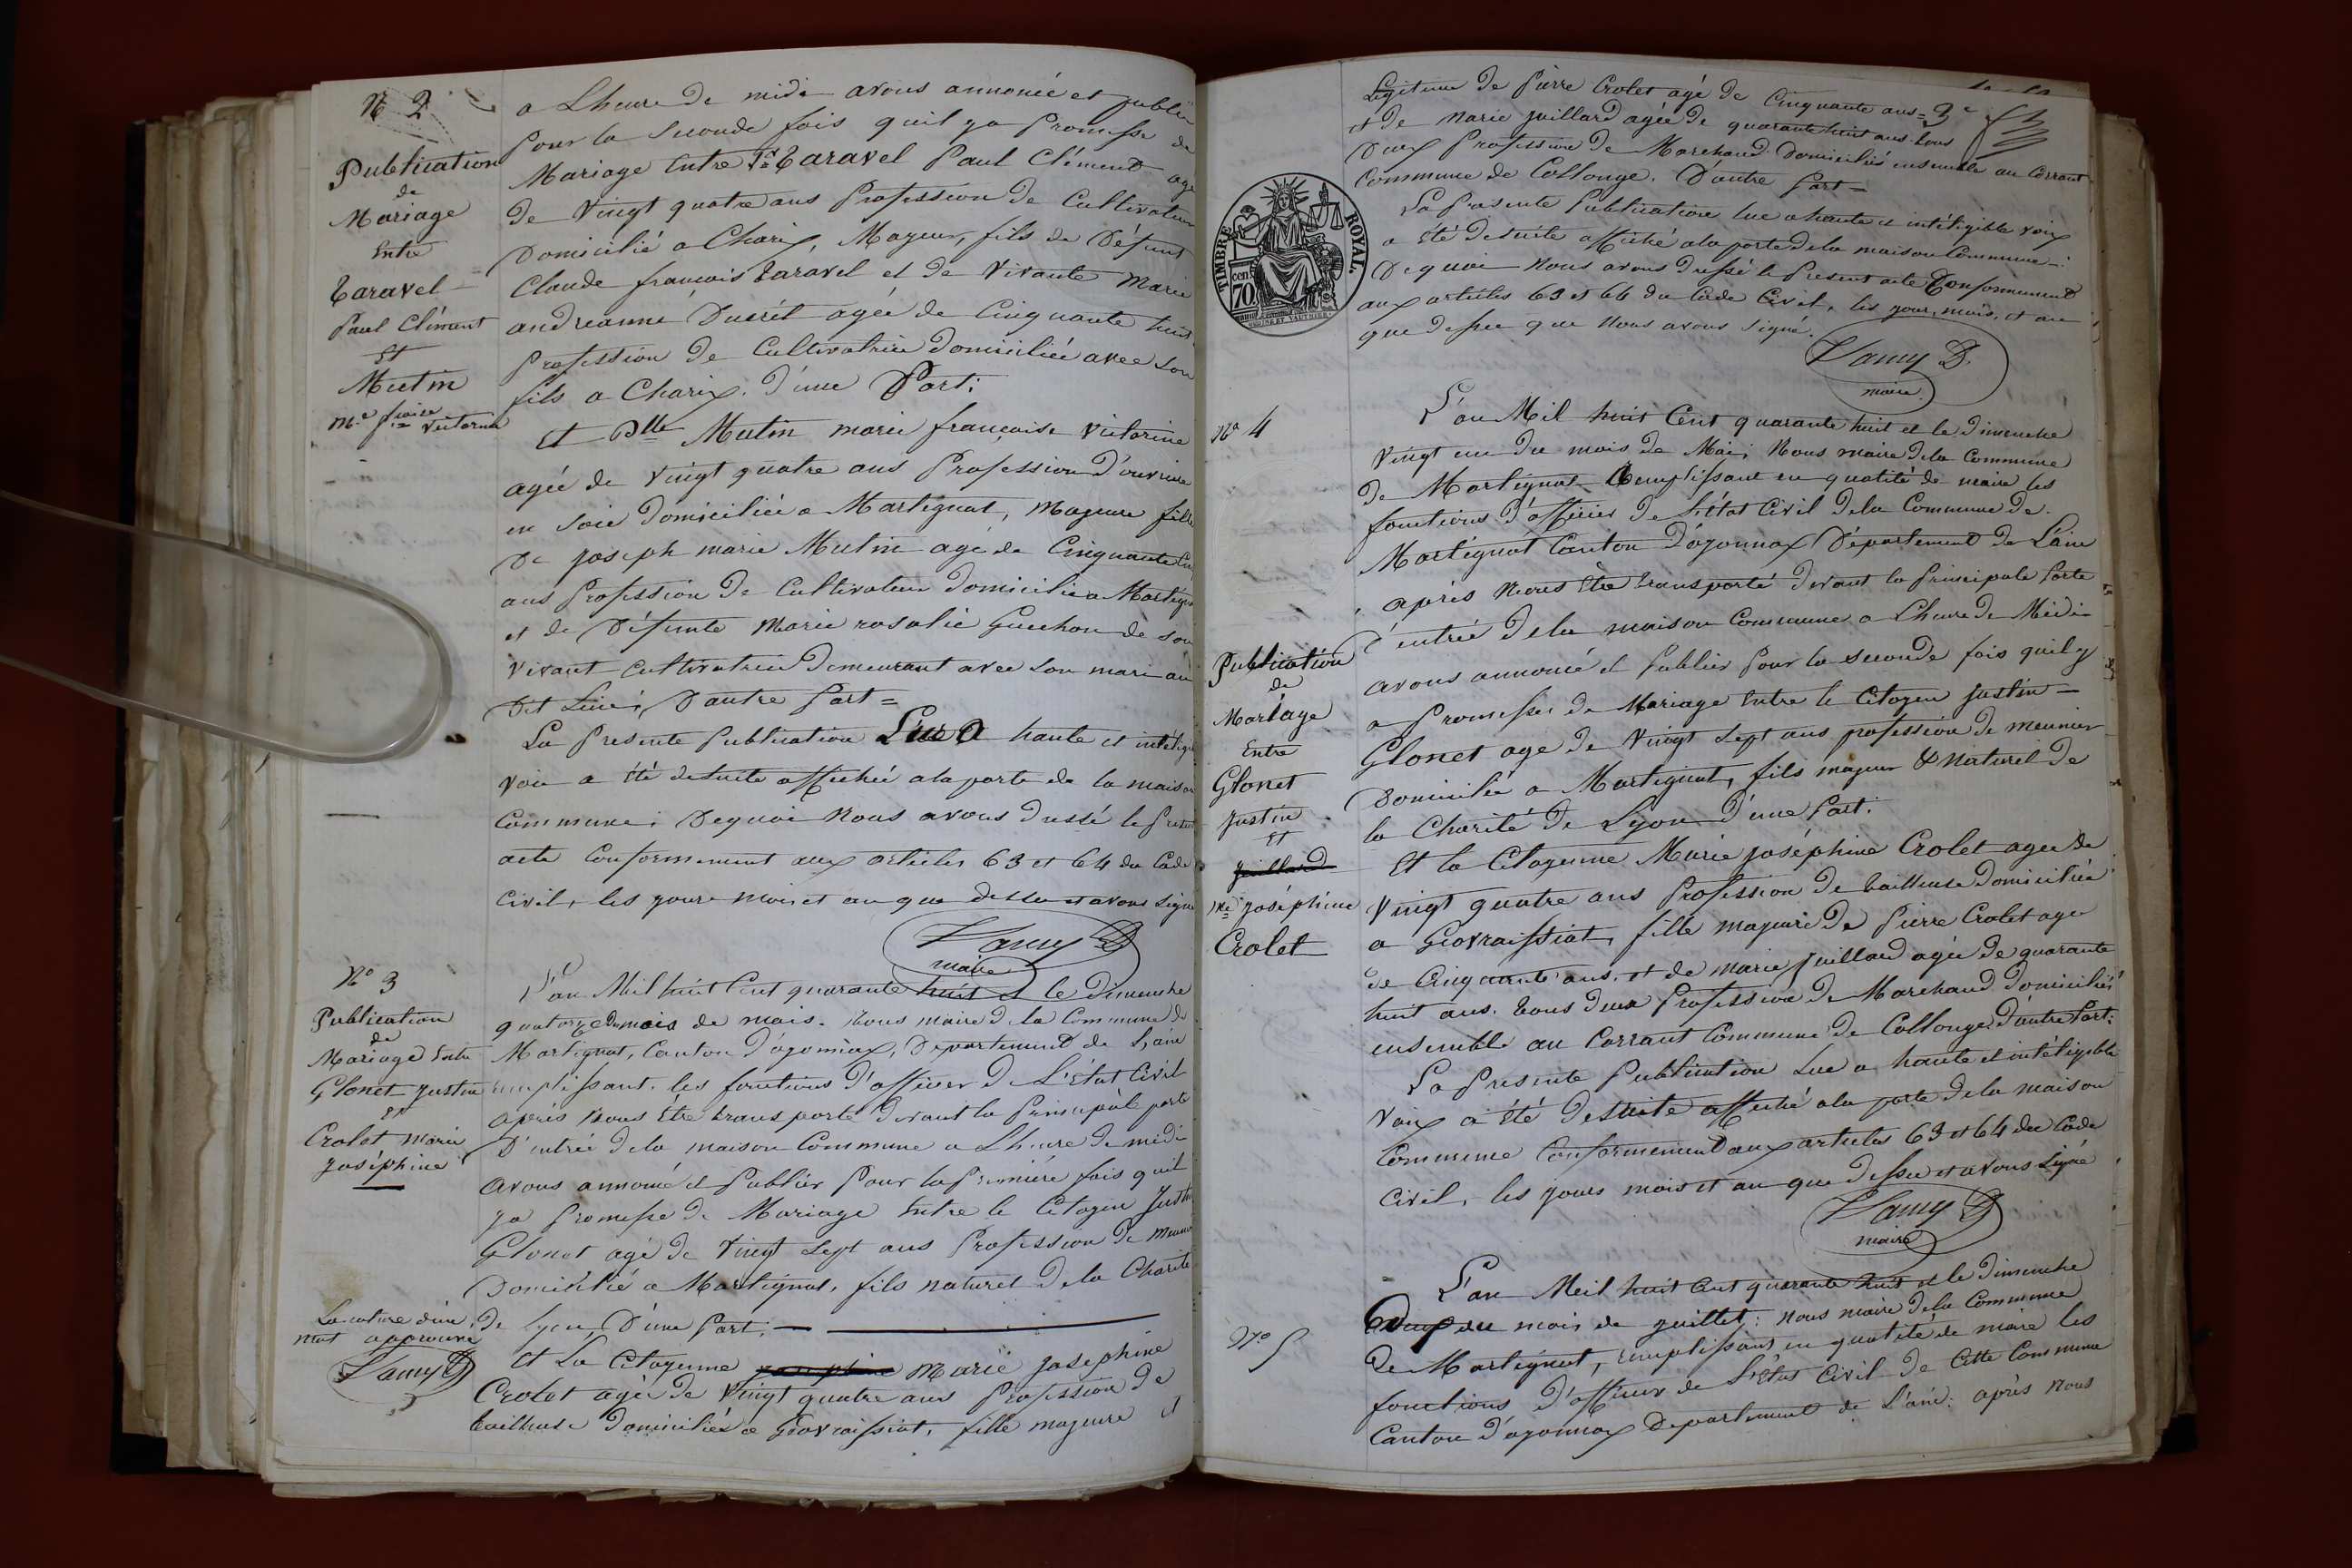 N° 2
Publication
de
Mariage
Entre
Taravel
Paul Clément
Et
Mutin
Me. fçoise Victorine
a Lheure de midi avons annoncé et publier
pour la seconde fois quil ya Promesse de
Mariage Entre Sr. Taravel Paul Clément age
de Vingt quatre ans Profession de Cultivateur
Domicilié a Charix, Mageur, fils de Défunt
Claude françois Taravel et de Vivante Marie
andréanne Ducrét agée de Cinquante huit
Profession de Cultivatrice Domiciliée avec son
fils a Charix. d'une Part;
Et Dlle Mutin marie françoise Victorine
agée de vingt quatre ans Profession d'ouvriere
en soie Domiciliée a Martignat, Mageure fille
De joseph marie Mutin agé de Cinquante
ans Profession de Cultivateur Domicilié a Martignat
et de Défunte Marie rosalie Guichon de son
vivant Cultivatrice Demeurant avec son mari au
Dit Lieu; D'autre Part =
La Presente Publication Lue a haute et intéligible
voix a été desuite affichée ala porte de la maison
Commune; Dequoi Nous avons dressé le Présent
acte Conformement aux articles 63 et 64 du Code
Civil, les jours mois et an que dessu et avons signé
Lamy D
maire
N° 3
Publication
de
Mariage Entre
Glonet Justin
Et
Crolet Marie
joséphine
L'an Mil huit Cent quarante huit et le Dimanche
quatorze du mois de mais. Nous maire de la Commune de
Martignat, Canton d'ogonnax, Département de L'ain
remplissant les fonctions d'officier de L'Etat Civil
après Nous Etre transporté devant la Principale porte
D'entrée de la maison Commune a Lheure de midi
avons annoncé et Publier Pour la Première fois quil
ya Promesse de Mariage Entre le Citogen Justin
Glonet agé de Vingt sept ans Profession de Meunier
Domicilié a Martignat, fils naturel de la Charité
de Lyon, D'une Part;
La rature d'un
mot approuvé
Lamy D
Et La Citogenne Marie joséphine
Crolet agée de Vingt quatre ans Profession de
tailleuse Domiciliée a Géovraissiat, fille mageure et
Légitime de Pierre Crolet agé de Cinquante ans =
et de Marie juillard agée de quarante huit ans tous
Deux Profession de Marchand Domiciliés ensemble au Corrant
Commune de Collonge. D'autre Part =
La Presente Publication lue a haute et intéligible voix
a été desuite affiché ala porte de la maison Commune;
Dequoi Nous avons dressé le Present acte Conformement
aux articles 63 et 64 du Code Civil, les jour, mois, et an
que dessu que Nous avons signé.
TIMBRE ROYAL.
cen
70
Lamy D.
maire
N° 4
L'an Mil huit Cent quarante huit et le Dimanche
Vingt un du mois de Mai; Nous maire de la Commune
de Martignat Remplissant en qualité de maire les
fonctions d'officier de L'état Civil de la Commune de
Martignat Canton d'ogonnax Département de L'ain
après Nous Etre transporté devant la Principale Porte
d'entrée de la maison Commune a Lheure de Midi
avons annoncé et Publier Pour la seconde fois quil y
a Promesse de Mariage Entre le Citogen Justin
Glonet age de Vingt sept ans profession de meunier
Domicilié a Martignat, fils mageur & Naturel de
la Charité de Lyon d'une Part;
Publication
de
Mariage
Entre
Glonet
Justin
Et
juillard
Me joséphine
Crolet
Et la Citogenne Marie joséphine Crolet agée de
Vingt quatre ans Profession de tailleuse Domiciliée
a Géovraissiat, fille mageure de Pierre Crolet age
de Cinquante ans, et de Marie juillard agée de quarante
huit ans. tous deux Profession de Marchand Domiciliés
ensemble au Corrant Commune de Collonge. D'autre Part;
La Presente Publication Lue a haute et intéligible
Voix a été desuite affiché ala porte de la maison
Commune Conformement aux articles 63 et 64 du Code
Civil, les jours mois et an que dessu et avons signé
Lamy D
maire
N° 5
L'an Meil huit Cent quarante huit et le Dimanche
Deux du mois de juillet; Nous maire de la Commune
de Martignat, remplissant en qualité de maire les
fonctions d'officier de L'état Civil de Cette Commune
Canton d'ogonnax Departement de L'ain; après Nous